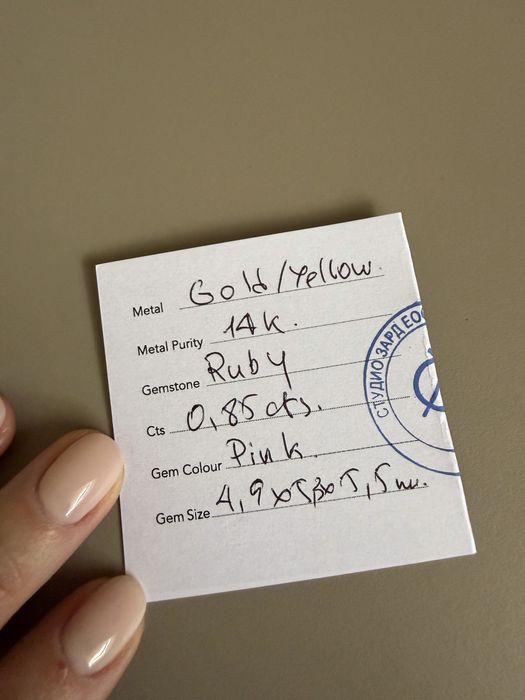 Metal Gold/Yellow.
Metal Purity 14k.
Gemstone Ruby
Cts 0,85 cts.
Gem Colour Pink.
Gem Size 4,9 x 5,3 x 5,5 mm.
СТУДИО ЗАРД ЕОО